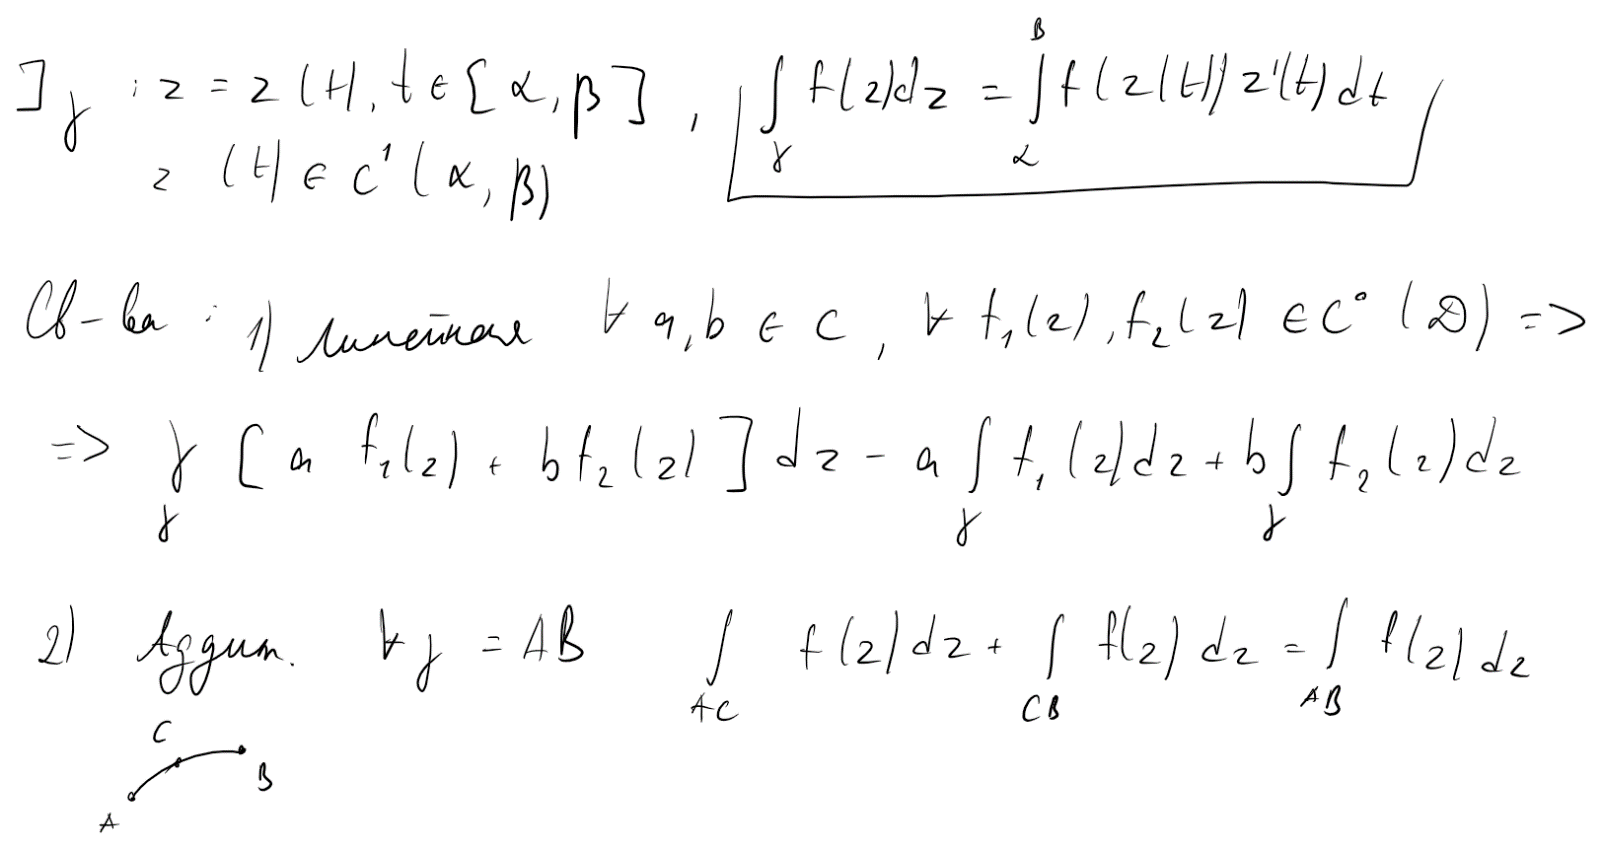 ］γ : z = z(t), t ∈ [α, β], ∫_γ f(z)dz = ∫_α^β f(z(t)) z'(t) dt
z(t) ∈ C¹(α, β)
Св-ва : 1) линейная ∀ a, b ∈ C, ∀ f₁(z), f₂(z) ∈ C° (D) =>
=> γ_γ [a f₁(z) + b f₂(z)] dz - a ∫_γ f₁(z)dz + b ∫_γ f₂(z)dz
2) Аддит. ∀ γ = AB ∫_AC f(z)dz + ∫_CB f(z)dz = ∫_AB f(z)dz
C
B
A